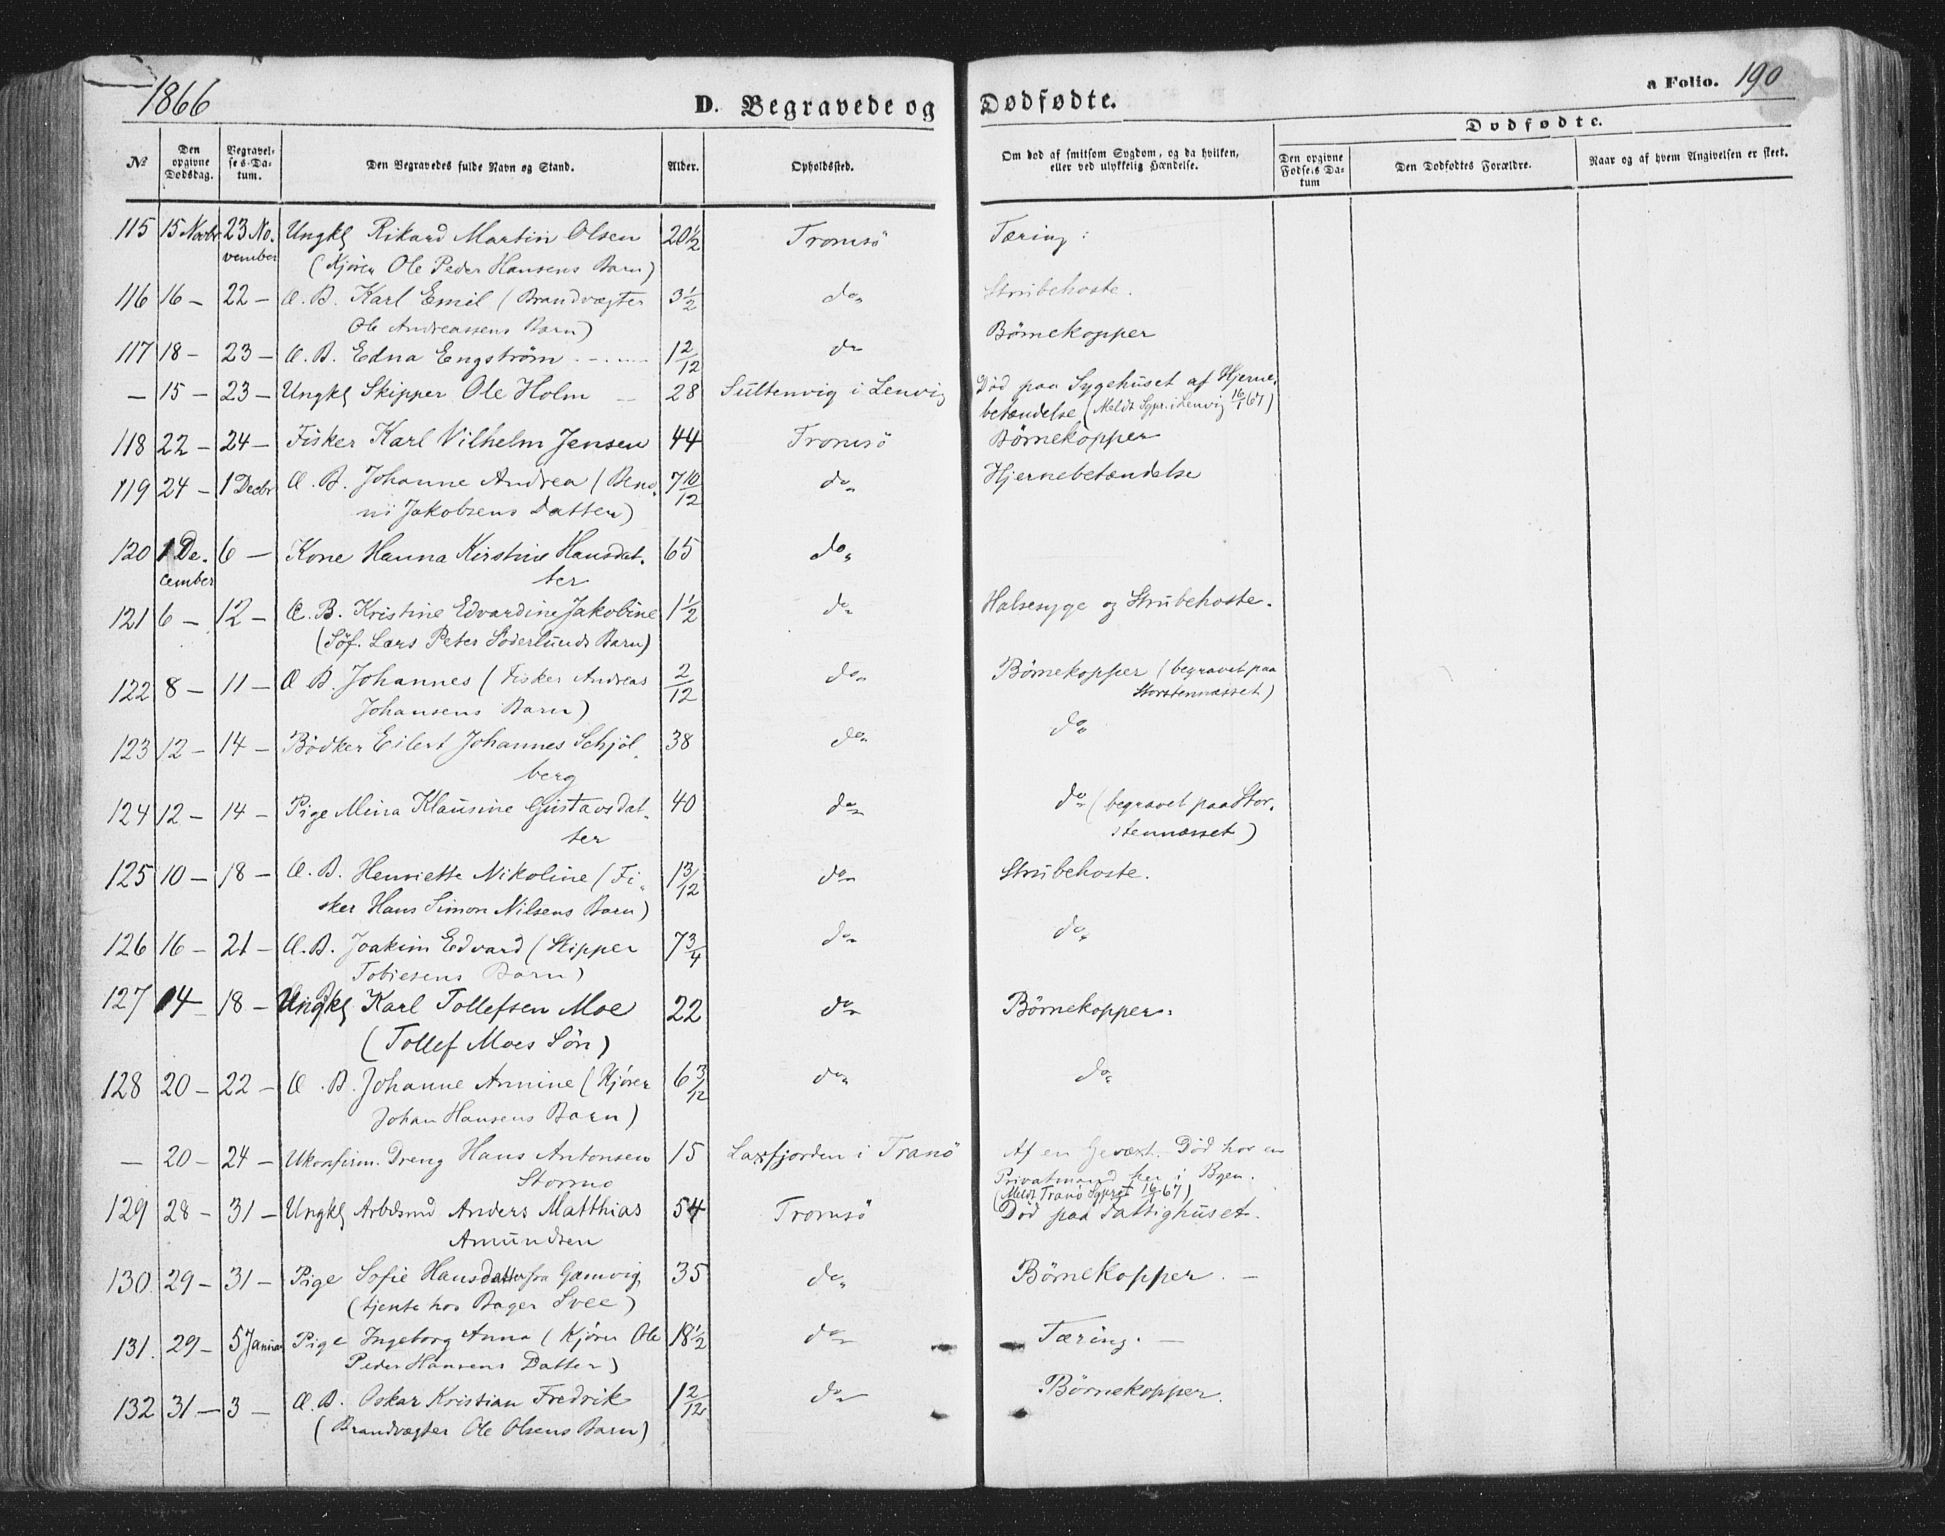 1866 D. Begravede og Dødfødte. a Folio. 190
Dødfødte.
№ Den opgivne Dødsdag. Begravelses-Datum. Den Begravedes fulde Navn og Stand. Alder. Opholdssted. Om død af smitsom Sygdom, og da hvilken, eller ved ulykkelig Hændelse. Den opgivne Fødsels Datum Den Dødfødtes Forældre. Naar og af hvem Angivelsen er skeet.
115 15 Novbr 23 No- Ungkl Rikard Martin Olsen 20 1/2 Tromsö Tæring:
vember (Kjörer Ole Peder Hansens Barn)
116 16 - 22 - Æ. B. Karl Emil (Brandvægter 3 1/2 do Strubehoste.
Ole Andreassens Barn)
117 18 - 23 - Æ. B. Edna Engström 1 2/12 do Börnekopper
- 15 - 23 - Ungkl Skipper Ole Holm 28 Sultenvig i Lenvig Död paa Sygehuset af Hjerne-
betændelse (Meldt Sgpr. i Lenvig 16/1 67)
118 22 - 24 - Fisker Karl Vilhelm Jensen 44 Tromsö Börnekopper
119 24 - 1 Decbr Æ. B. Johanne Andrea (Beno- 7 10/12 do Hjernebetændelse
ni Jakobsens Datter)
120 1 De- 6 - Kone Hanna Kirstine Hansdat- 65 do
cember ter
121 6 - 12 - Æ. B. Kristine Edvardine Jakobine 1 1/2 do Halsesyge og Strubehoste.
(Söf. Lars Peter Söderlunds Barn)
122 8 - 11 - Æ B. Johannes (Fisker Andreas 2/12 do Börnekopper (begravet paa
Johansens Barn) Storstennæsset)
123 12 - 14 - Bödker Eilert Johannes Schjöl- 38 do do
berg
124 12 - 14 - Pige Mina Klausine Gustavsdat- 40 do do (begravet paa Stor-
ter stennæsset)
125 10 - 18 - Æ. B. Henriette Nikoline (Fi- 1 3/12 do Strubehoste.
sker Hans Simon Nilsens Barn)
126 16 - 21 - Æ. B. Joakim Edvard (Skipper 7 3/4 do do
Tobiesens Barn)
127 14 - 18 - Ungkl Karl Tollefsen Moe 22 do Börnekopper.
(Tollef Moes Sön)
128 20 - 22 - Æ. B. Johanne Annine (Kjörer 6 3/12 do do
Johan Hansens Barn)
- 20 - 24 - Ukonfirm. Dreng Hans Antonsen 15 Laxfjorden i Tranö Af en Gevæxt. Död hos en
Stormo Privatmand her i Byen.
(Meldt Tranö Sgpr. 16/1 67)
129 28 - 31 - Ungkl Arbdsmd Anders Matthias 54 Tromsö Död paa Fattighuset.
Amundsen
130. 29 - 31 - Pige Sofie Hansdatter fra Gamvig 35 do Börnekopper. -
(tjente hos Bager Svee)
131. 29 - 5 Januar Pige Ingeborg Anna (Kjörer Ole 18 1/2 do Tæring. -
Peder Hansens Datter)
132 31 - 3 - Æ. B. Oskar Kristian Fredrik 1 2/12 do Börnekopper.
(Brandvægter Ole Olsens Barn)